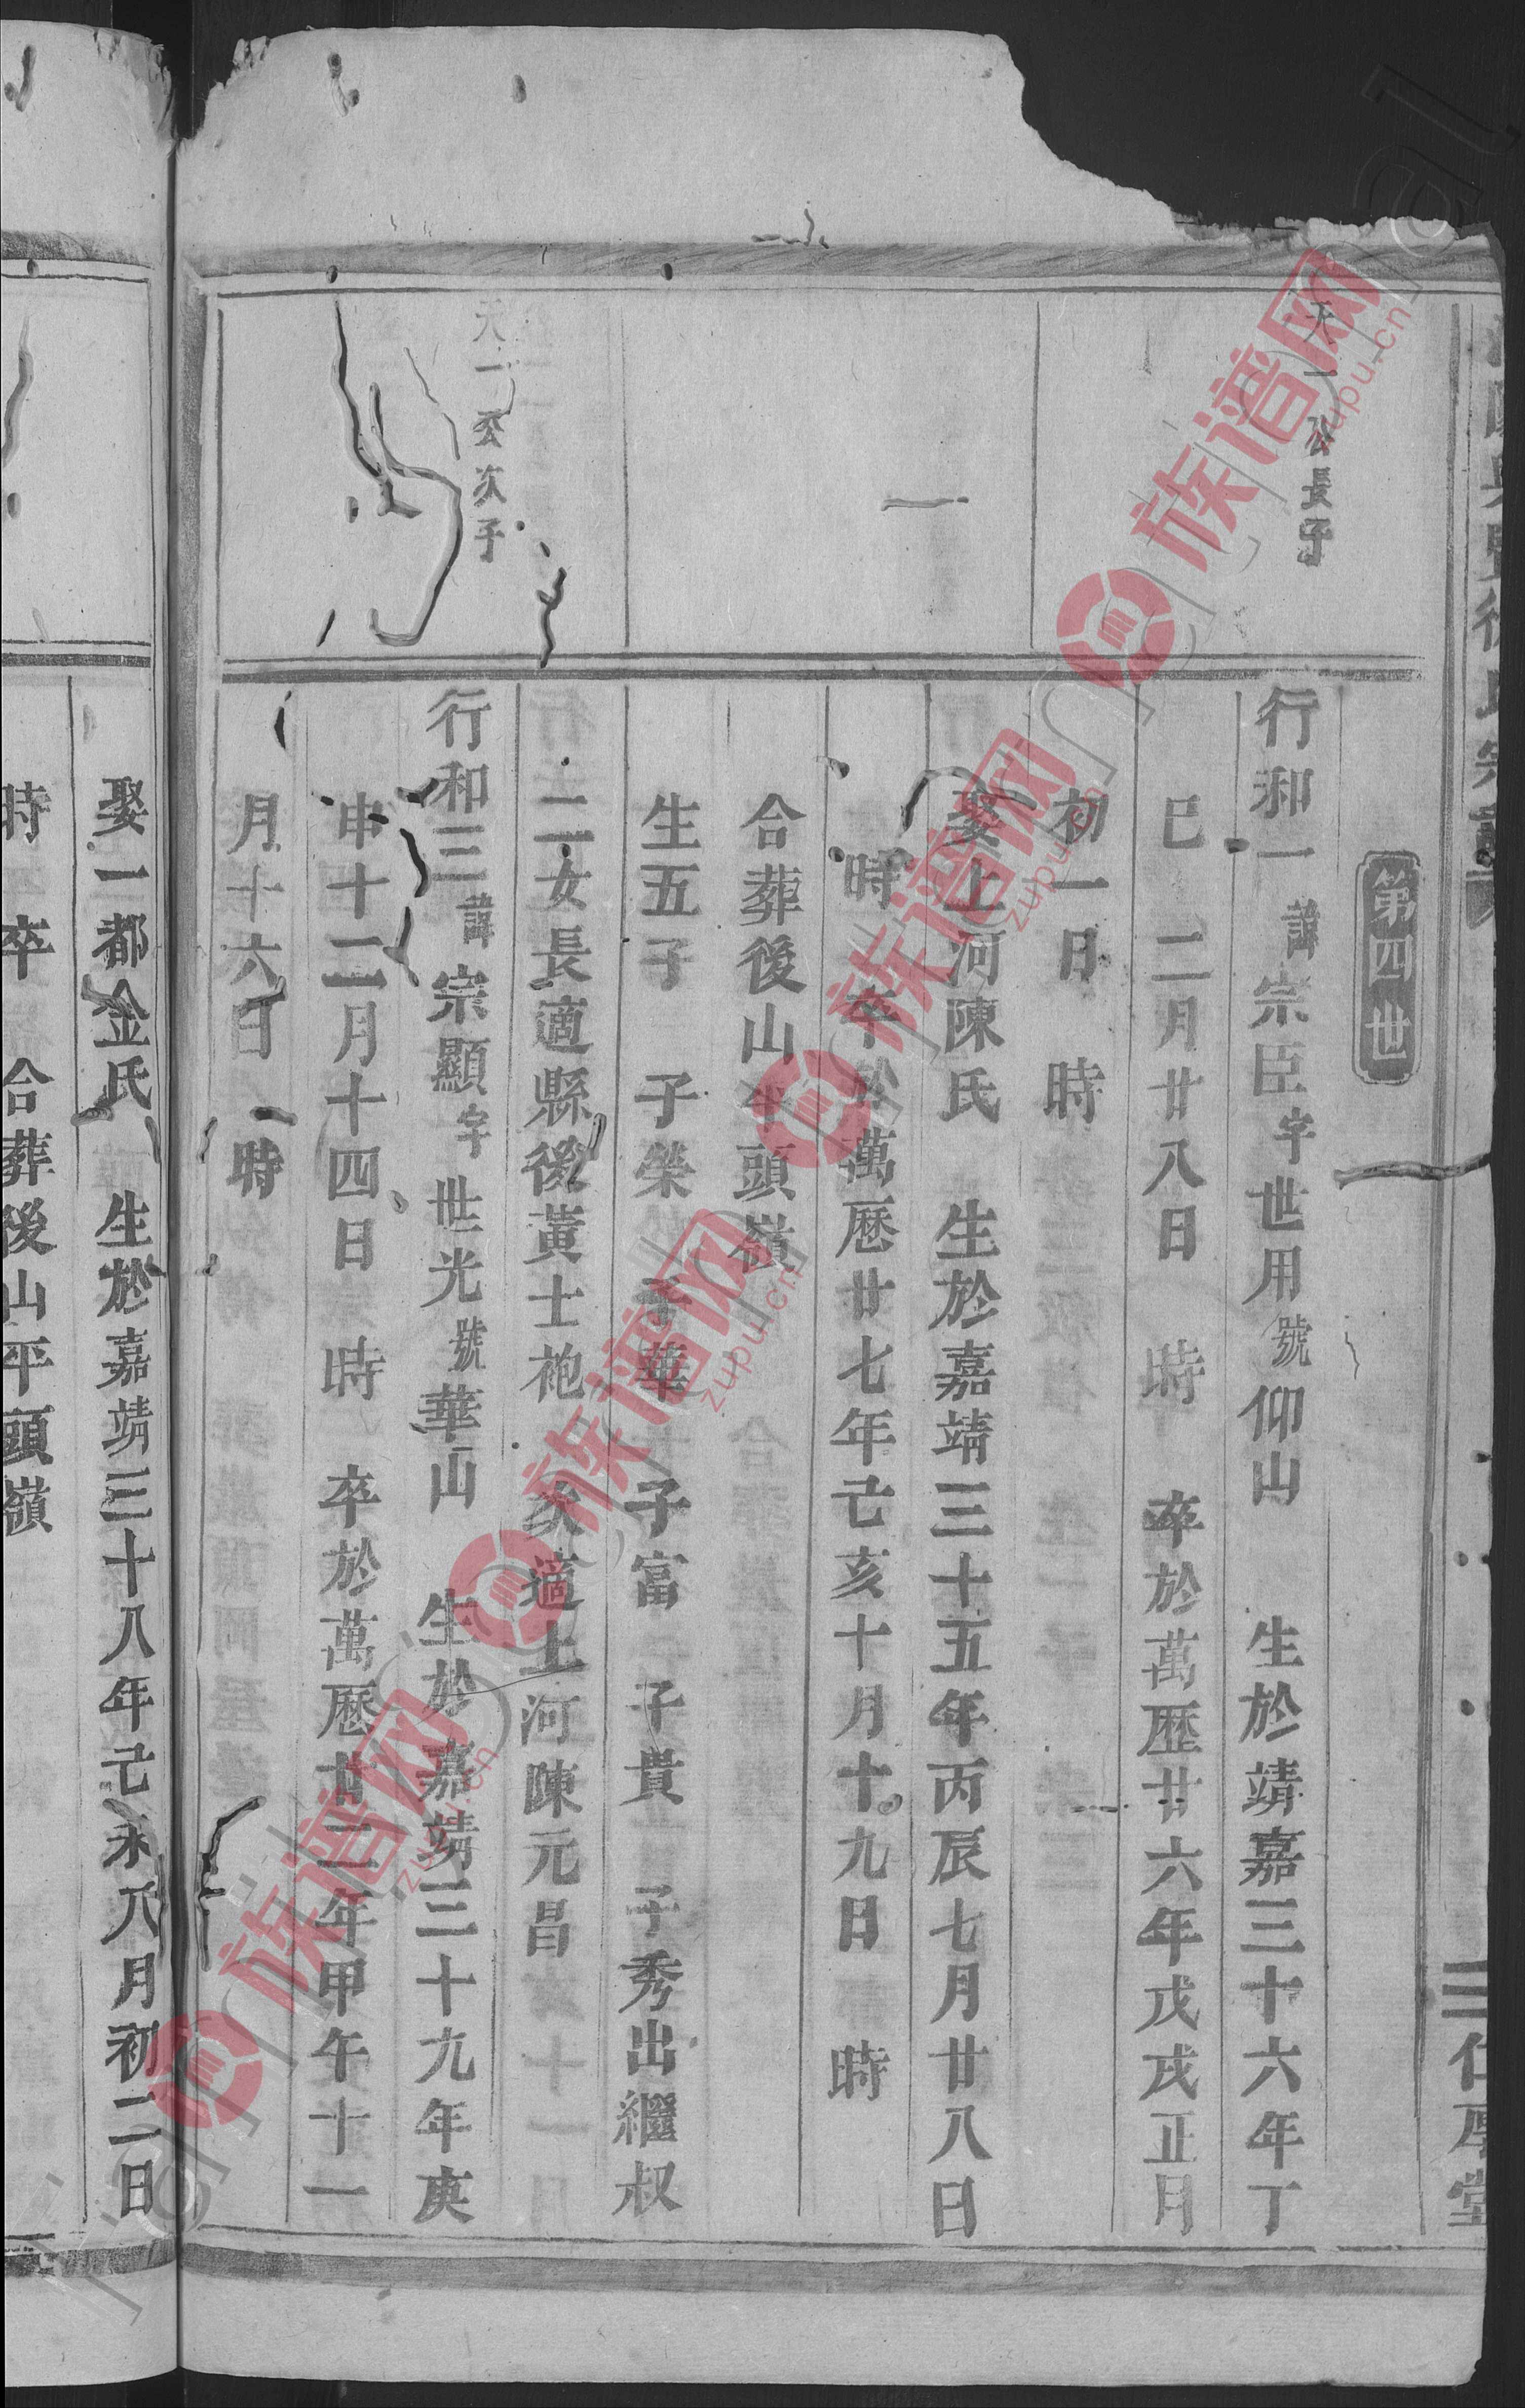 第四世
天一公長子
行和一諱宗臣字世用號仰山　生於靖嘉三十六年丁
巳二月廿八日　時　卒於萬歷廿六年戊戌正月
初一日　時
娶上河陳氏　生於嘉靖三十五年丙辰七月廿八日
時　卒於萬歷廿七年己亥十月十九日　時
合葬後山平頭嶺
生五子　子榮　子華　子富　子貴　子秀出繼叔
二女長適縣後黃士袍　次適上河陳元昌
天一公次子
行和三諱宗顯字世光號華山　生於嘉靖三十九年庚
申十二月十四日　時　卒於萬歷廿二年甲午十一
月十六日　時
娶一都金氏　生於嘉靖三十八年己未八月初二日
時　卒　合葬後山平頭嶺
三仁厚堂
族谱网
zupu.cn
族谱网
zupu.cn
族谱网
zupu.cn
族谱网
zupu.cn